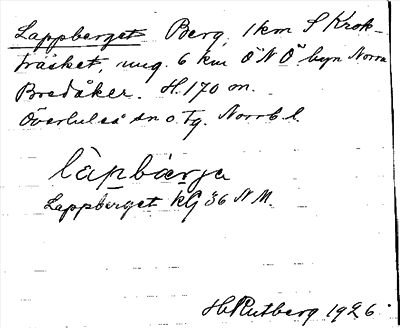 Lappberget Berg, 1 km S Krok-
träsket, ung. 6 km Ö N Ö byn Norra
Bredåker. H. 170 m.
Överluleå sn o. Tg. Norrb. l.
làpbærja
Lappberget kG 36 N M.
H. Rutberg 1926.